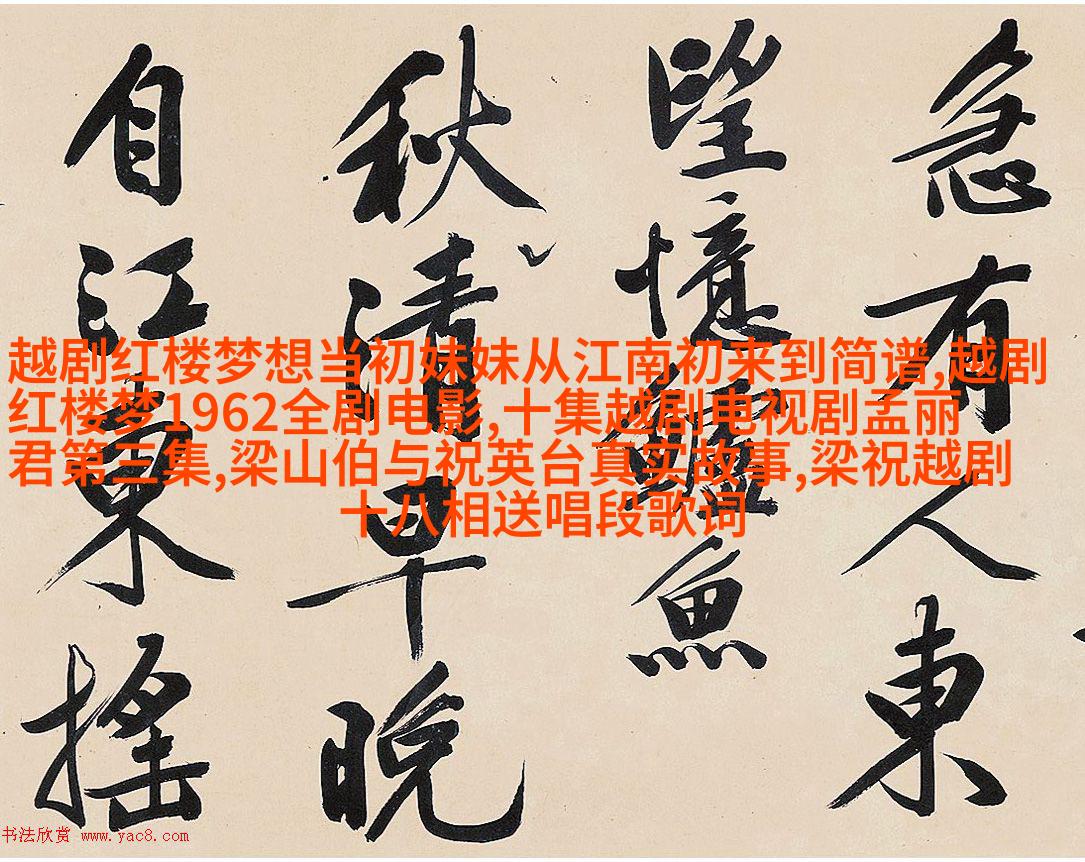 急有人東
望憶鱸魚
秋清早晚
自江東搖
越剧红楼梦想当初妹妹从江南初来到简谱,越剧
红楼梦1962全剧电影,十集越剧电视剧孟丽
君第三集,梁山伯与祝英台真实故事,梁祝越剧
十八相送唱段歌词
书法欣赏 www.yac8.com